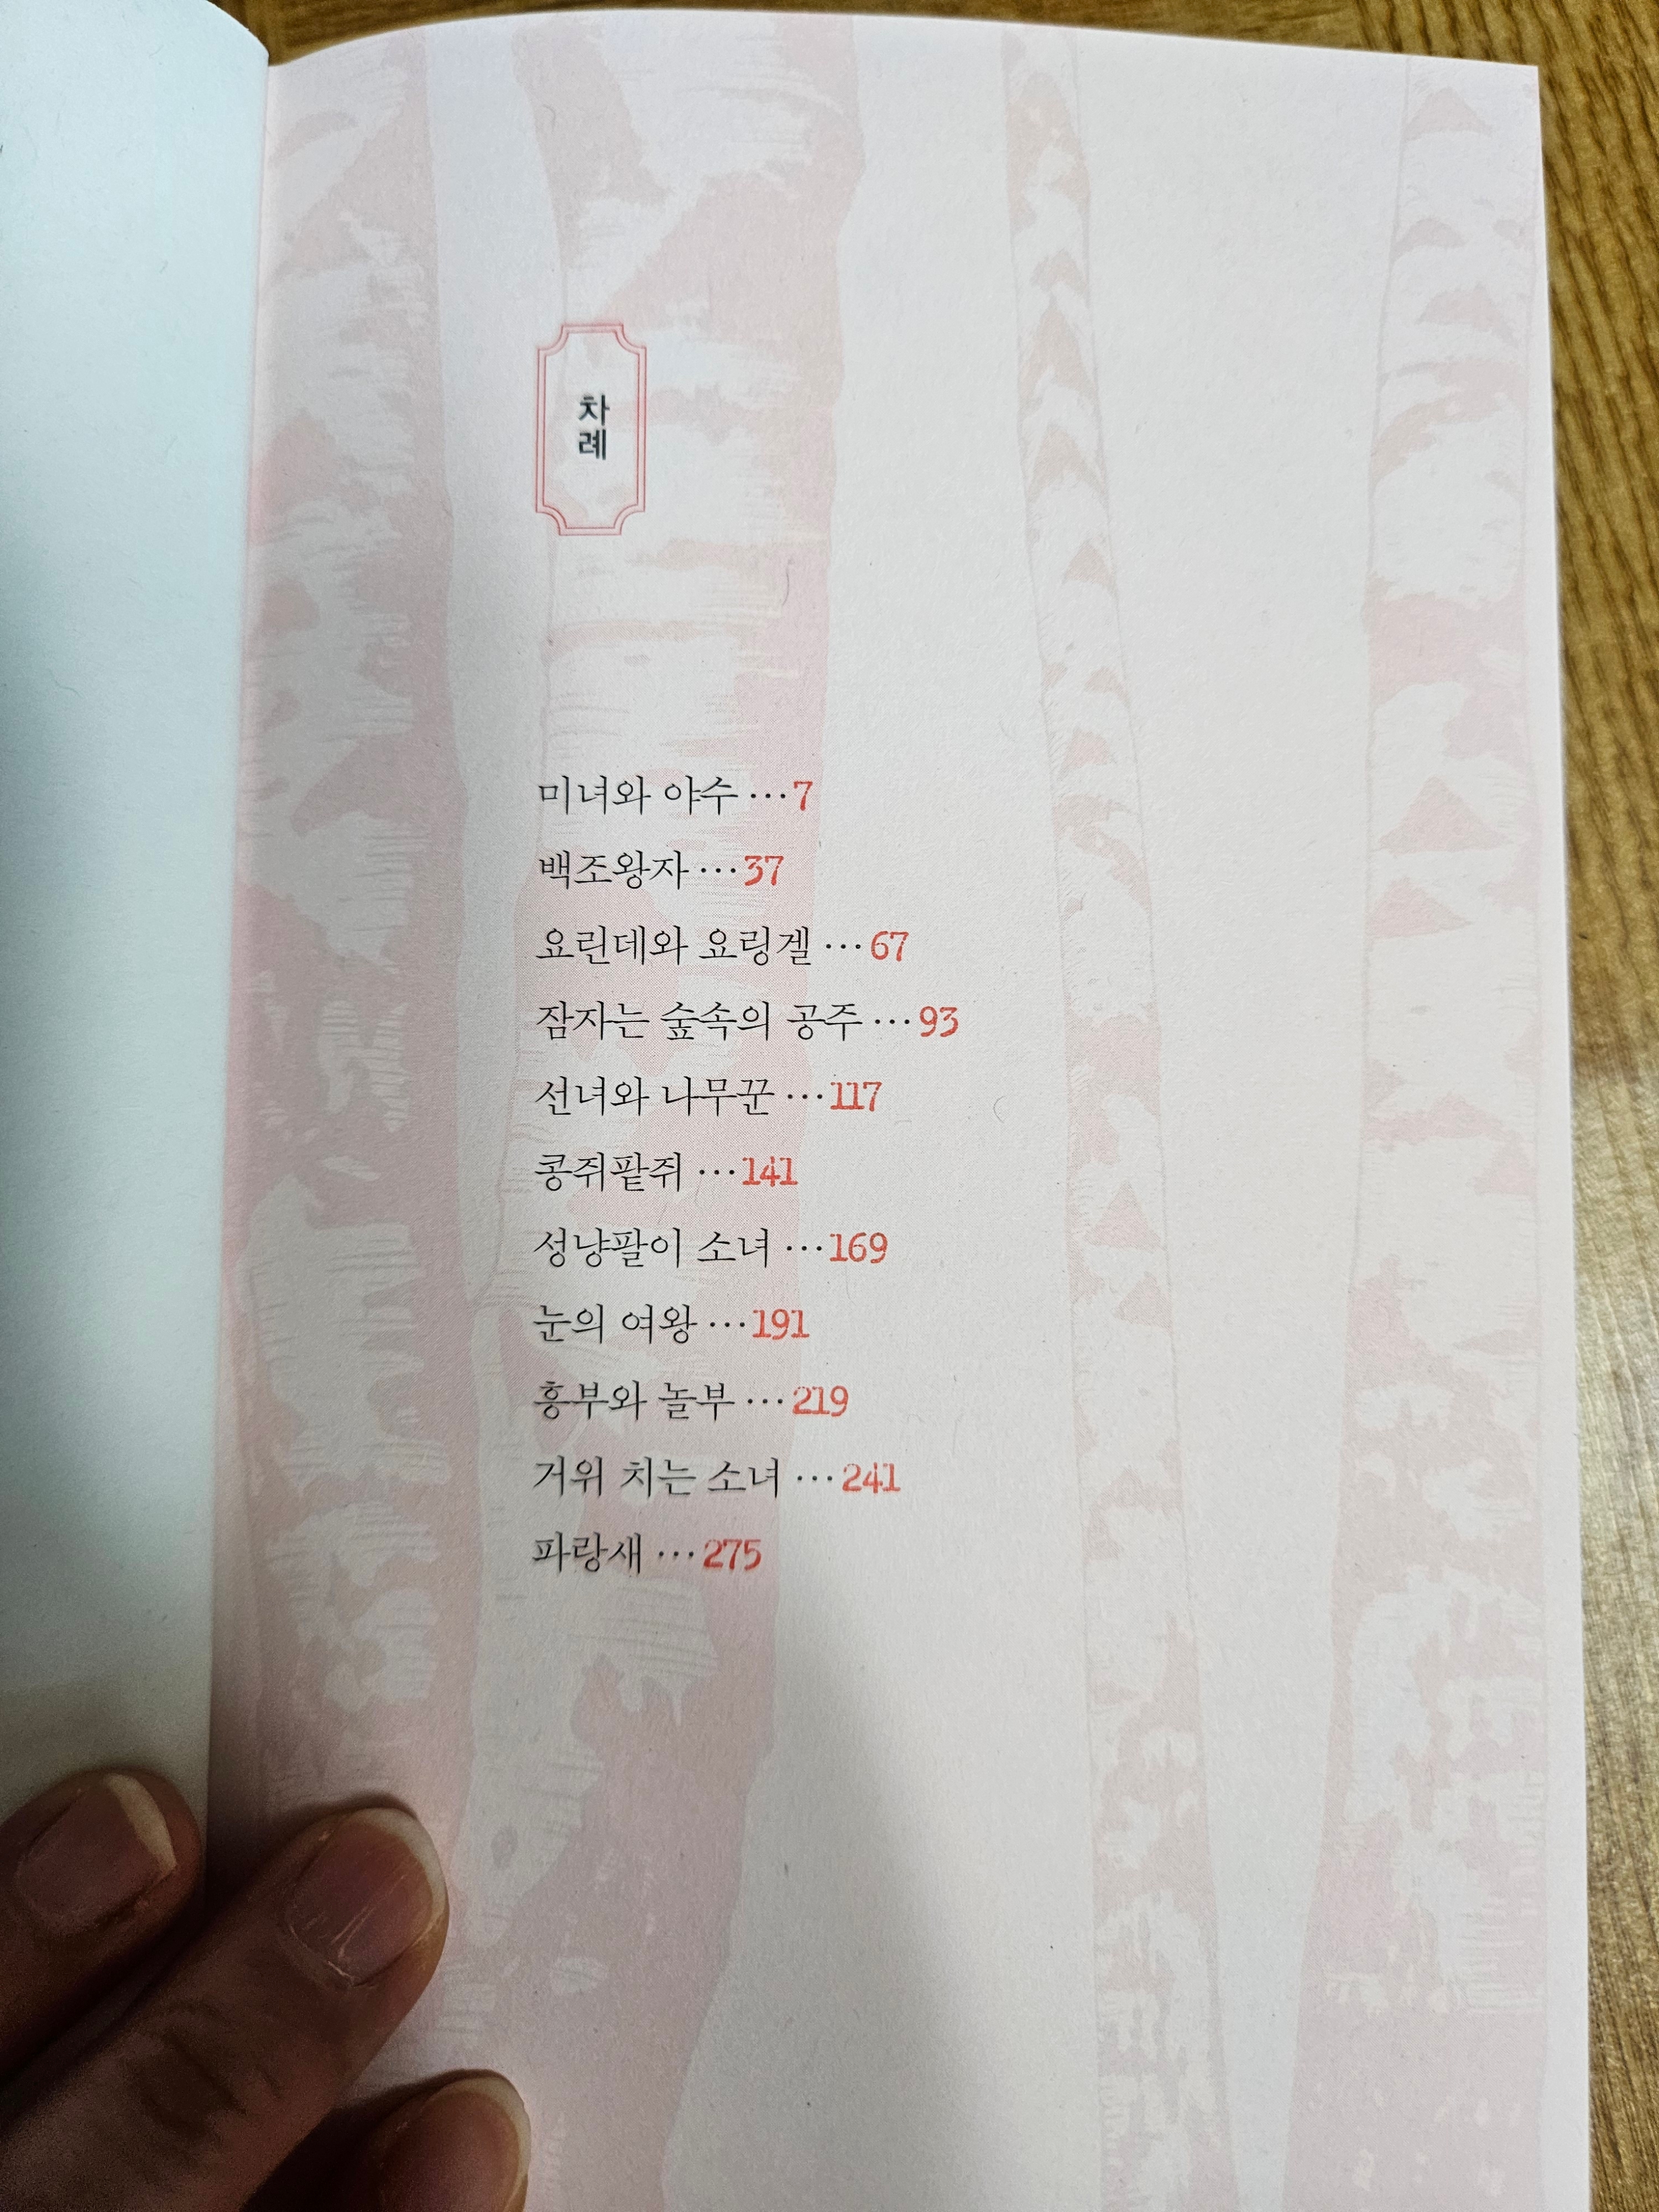 차례
미녀와 야수 ··· 7
백조왕자 ··· 37
요린데와 요링겔 ··· 67
잠자는 숲속의 공주 ··· 93
선녀와 나무꾼 ··· 117
콩쥐팥쥐 ··· 141
성냥팔이 소녀 ··· 169
눈의 여왕 ··· 191
흥부와 놀부 ··· 219
거위 치는 소녀 ··· 241
파랑새 ··· 275